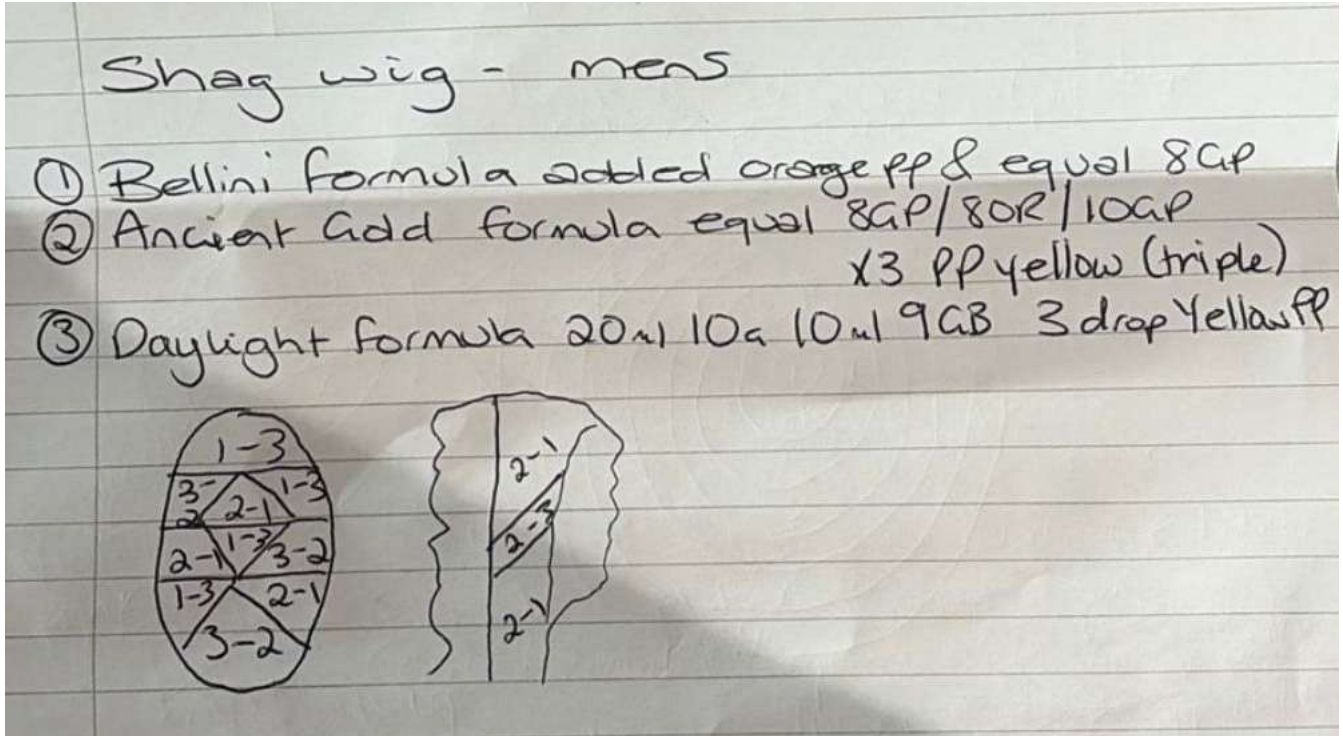 Shag wig - mens
① Bellini formula added orange pp & equal 8GP
② Ancient Gold formula equal 8GP/8OR/10GP
x3 PP yellow (triple)
③ Daylight formula 20ml 10G 10ml 9GB 3 drop Yellow PP
1-3
3-2 2-1 1-3
2-1 1-3 3-2
1-3 2-1
3-2
2-1
2-3
2-1